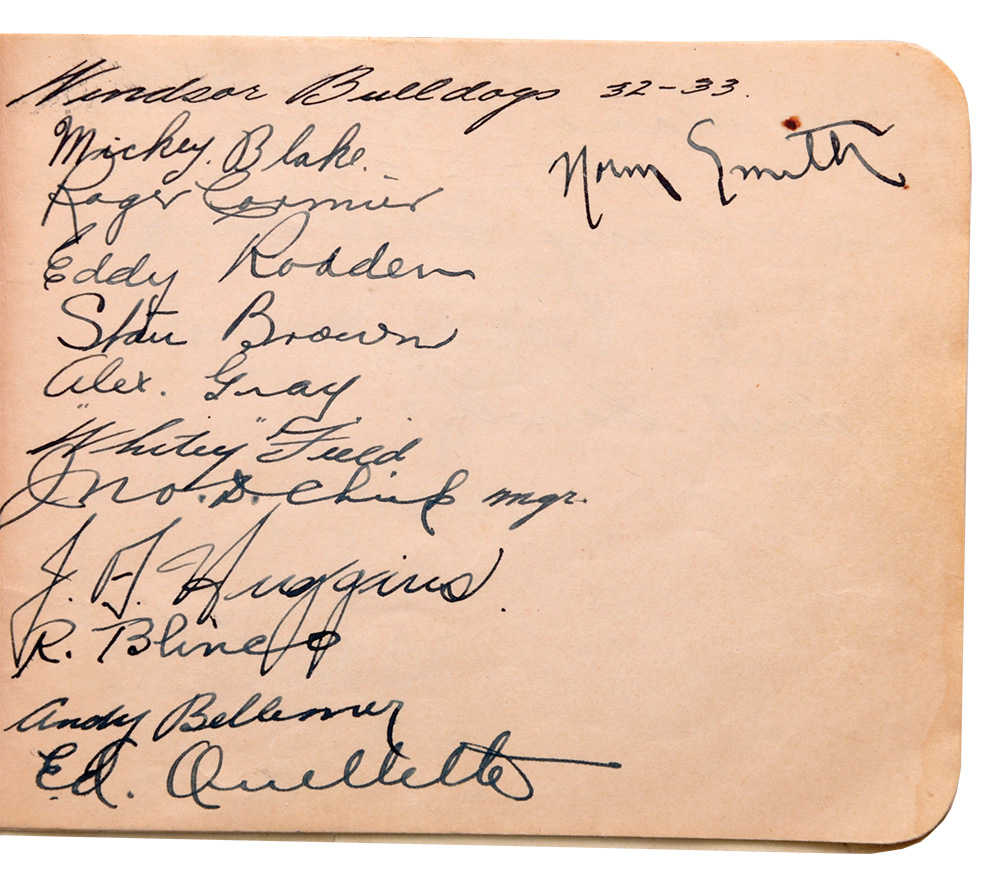 Windsor Bulldogs 32-33.
Mickey Blake.
Norm Smith
Roger Cormier
Eddy Rodden
Stan Brown
Alex. Gray
"Whitey" Field
Jno. D. Chick mgr.
J. A. Huggins.
R. Blinco
Andy Bellemer
Ed. Ouellette